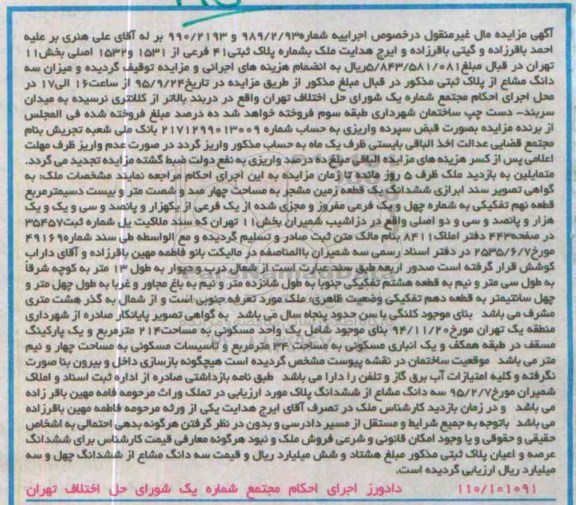 آگهی مزایده مال غیرمنقول درخصوص اجراییه شماره۹۸۹/۲/۹۳ و ۹۹۰/۲۱۹۳ بر له آقای علی هنری بر علیه
احمد باقرزاده و گیتی باقرزاده و ایرج هدایت ملک بشماره پلاک ثبتی۴۱ فرعی از ۱۵۳۱ و۱۵۳۲ اصلی بخش۱۱
تهران در قبال مبلغ۵/۸۴۳/۵۸۱/۰۸۱ریال به انضمام هزینه های اجرائی و مزایده توقیف گردیده و میزان سه
دانگ مشاع از پلاک ثبتی مذکور در قبال مبلغ مذکور از طریق مزایده در تاریخ۹۵/۹/۲۴ از ساعت۱۶ الی۱۷ در
محل اجرای احکام مجتمع شماره یک شورای حل اختلاف تهران واقع در دربند بالاتر از کلانتری نرسیده به میدان
سربند- دست چپ ساختمان شهرداری طبقه سوم فروخته خواهد شد ده درصد مبلغ فروخته شده فی المجلس
از برنده مزایده بصورت قبض سپرده واریزی به حساب شماره ۲۱۷۱۲۹۹۰۱۳۰۰۹ بانک ملی شعبه تجریش بنام
مجتمع قضایی عدالت اخذ الباقی بایستی ظرف یک ماه به حساب مذکور واریز گردد در صورت عدم واریز ظرف مهلت
اعلامی پس از کسر هزینه های مزایده الباقی مبلغ ده درصد واریزی به نفع دولت ضبط گشته مزایده تجدید می گردد.
متمایلین به بازدید ملک ظرف ۵ روز مانده تا زمان مزایده به این اجرای احکام مراجعه نمایند مشخصات ملک: به
گواهی تصویر سند ابرازی ششدانگ یک قطعه زمین مشجر به مساحت چهار صد و شصت متر و بیست دسیمترمربع
قطعه نهم تفکیکی به شماره چهل و یک فرعی مفروز و مجزی شده از یک فرعی از یکهزار و پانصد و سی و یک و یک
هزار و پانصد و سی و دو اصلی واقع در دزاشیب شمیران بخش۱۱ تهران که سند ملاکیت پل شماره ثبت۳۵۴۵۷
در صفحه۴۴۳ دفتر املاک۸۴۱۱ بنام مالک متن ثبت صادر و تسلیم گردیده و مع الواسطه طی سند شماره۴۹۱۶۹
مورخ۲۵۳۵/۶/۷ در دفتر اسناد رسمی سه شمیران باالمناصفه در مالکیت بانو فاطمه مهین باقرزاده و آقای داراب
کوشش قرار گرفته است صدور اربعه طبق سند عبارت است از شمال درب و دیوار به طول ۱۳ متر به کوچه شرقاً
به طول سی متر و نیم به قطعه هشتم تفکیکی جنوبا به طول شانزده متر و نیم به باغ مجاور و غربا به طول چهل متر و
چهل سانتیمتر به قطعه دهم تفکیکی وضعیت ظاهری: ملک مورد تعرفه جنوبی است و از شمال به گذر هشت متری
مشرف می باشد بنای موجود کلنگی با سن حدود پنجاه سال می باشد به گواهی تصویر پایانکار صادره از شهرداری
منطقه یک تهران مورخ۹۴/۱۱/۲۰ بنای موجود شامل یک واحد مسکونی به مساحت۲۱۴ مترمربع و یک پارکینگ
مسقف در طبقه همکف و یک انباری مسکونی به مساحت ۳۴ مترمربع و تاسیسات مسکونی به مساحت چهار و نیم
متر می باشد موقعیت ساختمان در نقشه پیوست مشخص گردیده است هیچگونه بازسازی داخل و بیرون بنا صورت
نگرفته و کلیه امتیازات آب برق گاز و تلفن را دارا می باشد طبق نامه بازداشتی صادره از اداره ثبت اسناد و املاک
شمیران مورخ۹۵/۲/۷ سه دانگ مشاع از ششدانگ پلاک مورد ارزیابی در تملک وراث مرحومه فامه مهین باقر زاده
می باشد و در زمان بازدید کارشناس ملک در تصرف آقای ایرج هدایت یکی از ورثه مرحومه فاطمه مهین باقرزاده
می باشد باتوجه به جمیع شرایط و مستقل از مسیر دادرسی و بدون در نظر گرفتن هرگونه بدهی احتمالی به اشخاص
حقیقی و حقوقی و یا وجود امکان قانونی و شرعی فروش ملک و نبود هرگونه معارفی قیمت کارشناس برای ششدانگ
عرصه و اعیان پلاک ثبتی مذکور مبلغ هشتاد و شش میلیارد ریال و قیمت سه دانگ مشاع از ششدانگ چهل و سه
میلیارد ریال ارزیابی گردیده است.
۱۱۰/۱۰۱۰۹۱ دادورز اجرای احکام مجتمع شماره یک شورای حل اختلاف تهران